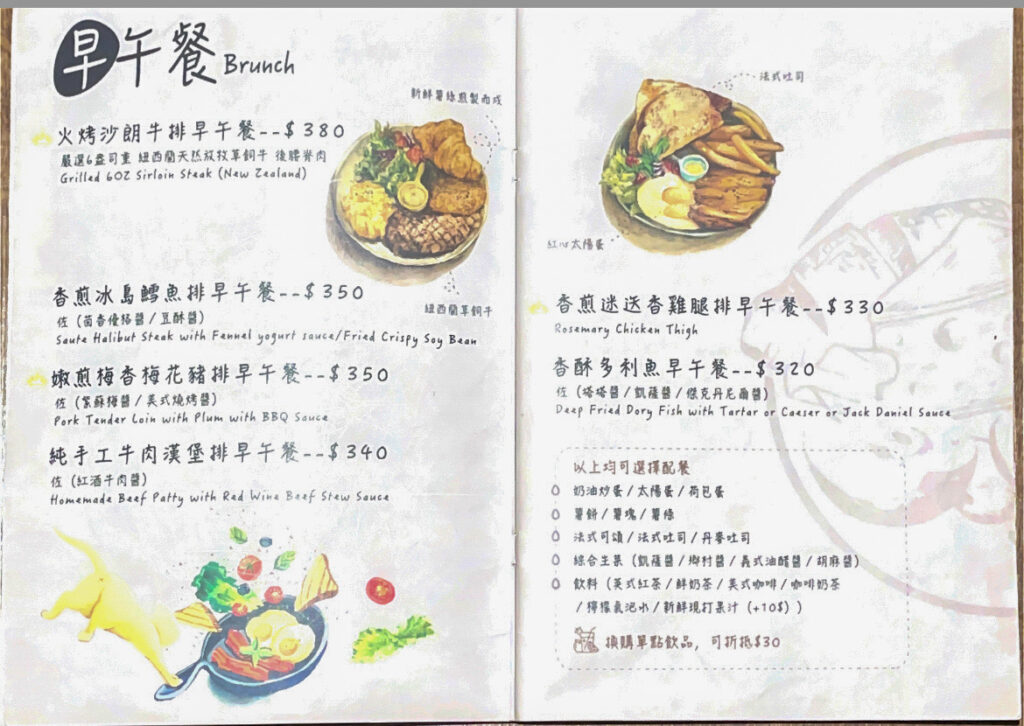 早午餐 Brunch
新鮮薯絲煎製而成
火烤沙朗牛排早午餐--$380
嚴選6盎司重 紐西蘭天然放牧草飼牛 後腰脊肉
Grilled 6OZ Sirloin Steak (New Zealand)
紐西蘭草飼牛
香煎冰島鱈魚排早午餐--$350
佐 (茴香優格醬/豆酥醬)
Saute Halibut Steak with Fennel yogurt sauce/Fried Crispy Soy Bean
嫩煎梅香梅花豬排早午餐--$350
佐 (紫蘇梅醬/美式燒烤醬)
Pork Tender Loin with Plum with BBQ Sauce
純手工牛肉漢堡排早午餐--$340
佐 (紅酒牛肉醬)
Homemade Beef Patty with Red Wine Beef Stew Sauce
法式吐司
紅心太陽蛋
香煎迷迭香雞腿排早午餐--$330
Rosemary Chicken Thigh
香酥多利魚早午餐--$320
佐 (塔塔醬/凱薩醬/傑克丹尼爾醬)
Deep Fried Dory Fish with Tartar or Caeser or Jack Daniel Sauce
以上均可選擇配餐
奶油炒蛋/太陽蛋/荷包蛋
薯餅/薯塊/薯條
法式可頌/法式吐司/丹麥吐司
綜合生菜 (凱薩醬/鄉村醬/義式油醋醬/胡麻醬)
飲料 (英式紅茶/鮮奶茶/美式咖啡/咖啡奶茶
/檸檬氣泡水/新鮮現打果汁 (+10$) )
換購單點飲品, 可折抵$30